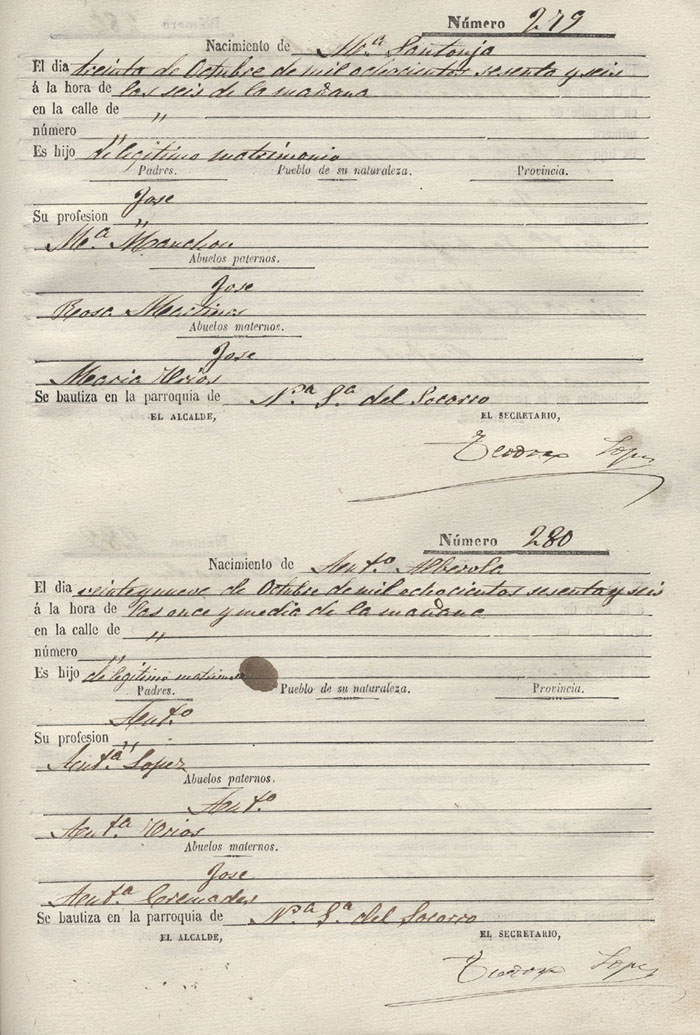 Número 279
Nacimiento de Mª Santonja
El dia treinta de Octubre de mil ochocientos sesenta y seis
á la hora de las seis de la mañana
en la calle de "
número "
Es hijo de legitimo matrimonio
Padres. Pueblo de su naturaleza. Provincia.
Jose
Su profesion "
Mª Manchon
Abuelos paternos.
Jose
Rosa Martinez
Abuelos maternos.
Jose
Maria Urios
Se bautiza en la parroquia de Nª Sª del Socorro
EL ALCALDE, EL SECRETARIO,
Teodoro Lopez
Número 280
Nacimiento de Antº Alberola
El dia veinte y nueve de Octubre de mil ochocientos sesenta y seis
á la hora de las once y media de la mañana
en la calle de "
número "
Es hijo de legítimo matrimonio
Padres. Pueblo de su naturaleza. Provincia.
Antº
Su profesion "
Antª Lopez
Abuelos paternos.
Antº
Antª Urios
Abuelos maternos.
Jose
Antª Cremades
Se bautiza en la parroquia de Nª Sª del Socorro
EL ALCALDE, EL SECRETARIO,
Teodoro Lopez